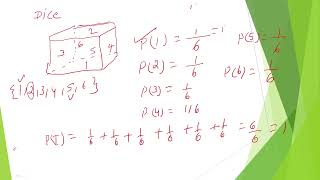 Dice
2
3 6 5 4
1
{1,2,3,4,5,6}
P(1) = 1/6
P(5) = 1/6
P(2) = 1/6
P(6) = 1/6
P(3) = 1/6
P(4) = 1/6
= 1/6 + 1/6 + 1/6 + 1/6 + 1/6 + 1/6 = 6/6 = 1